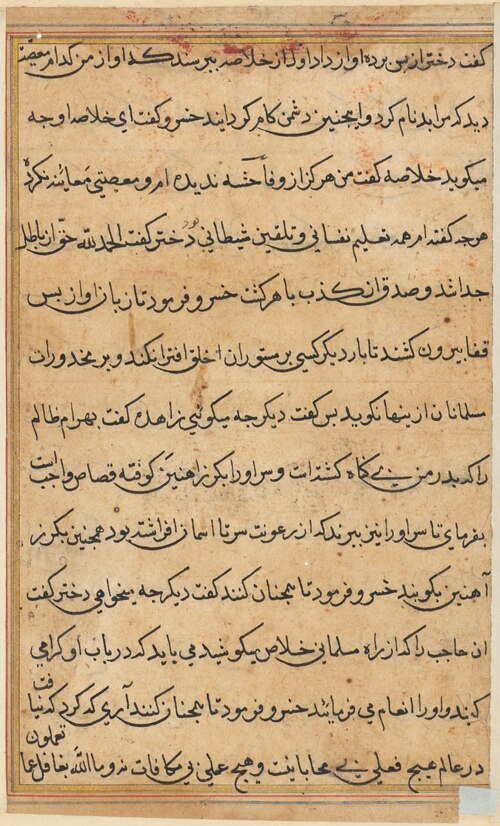 گفت دختر از پس پرده اواز داد اول از خلاصه بپرسند که او از من کدام معصیت
دید که مرا بدنام کرد و اینچنین دشمن کام کردانید خسرو گفت ای خلاصه او چه
میگوید خلاصه گفت من هرگز ازو فاحشه ندیده ام و معصیتی معاینه نکرده
هرچه گفته ام همه تعلیم نفسانی و تلقین شیطانی بود دختر گفت الحمد لله حق از باطل
جدا شد و صدق از کذب باهر گشت خسرو فرمود تا زبان او از پس
قفا بیرون کشند تا بار دیگر کسی بر مستوران خلق افترا نکند و بر مخدورات
مسلمانان ازینها نکوید پس گفت دیگر چه میگوئی زاهده گفت بهرام ظالم
را که پدر من بی گناه کشته است و سر او را بگرز اهنین کوفته قصاص واجب است
بفرمای تا سر او را نیز ببرند که از رعونت سر تا اسمان افراشته بود همچنین بگرز
آهنین بکوبند خسرو فرمود تا همچنان کنند گفت دیگر چه میخواهی دختر گفت
ان حاجب را که از راه مسلمانی خلاص میکوشید می باید که در باب او کرامی
کنید و او را انعام می فرمایند خسرو فرمود تا همچنان کنند آری که کرد که نیافت
در عالم هیچ فعلی بی محابا نیست و هیچ عملی بی مکافات نه و ما الله بغافل عما تعملون